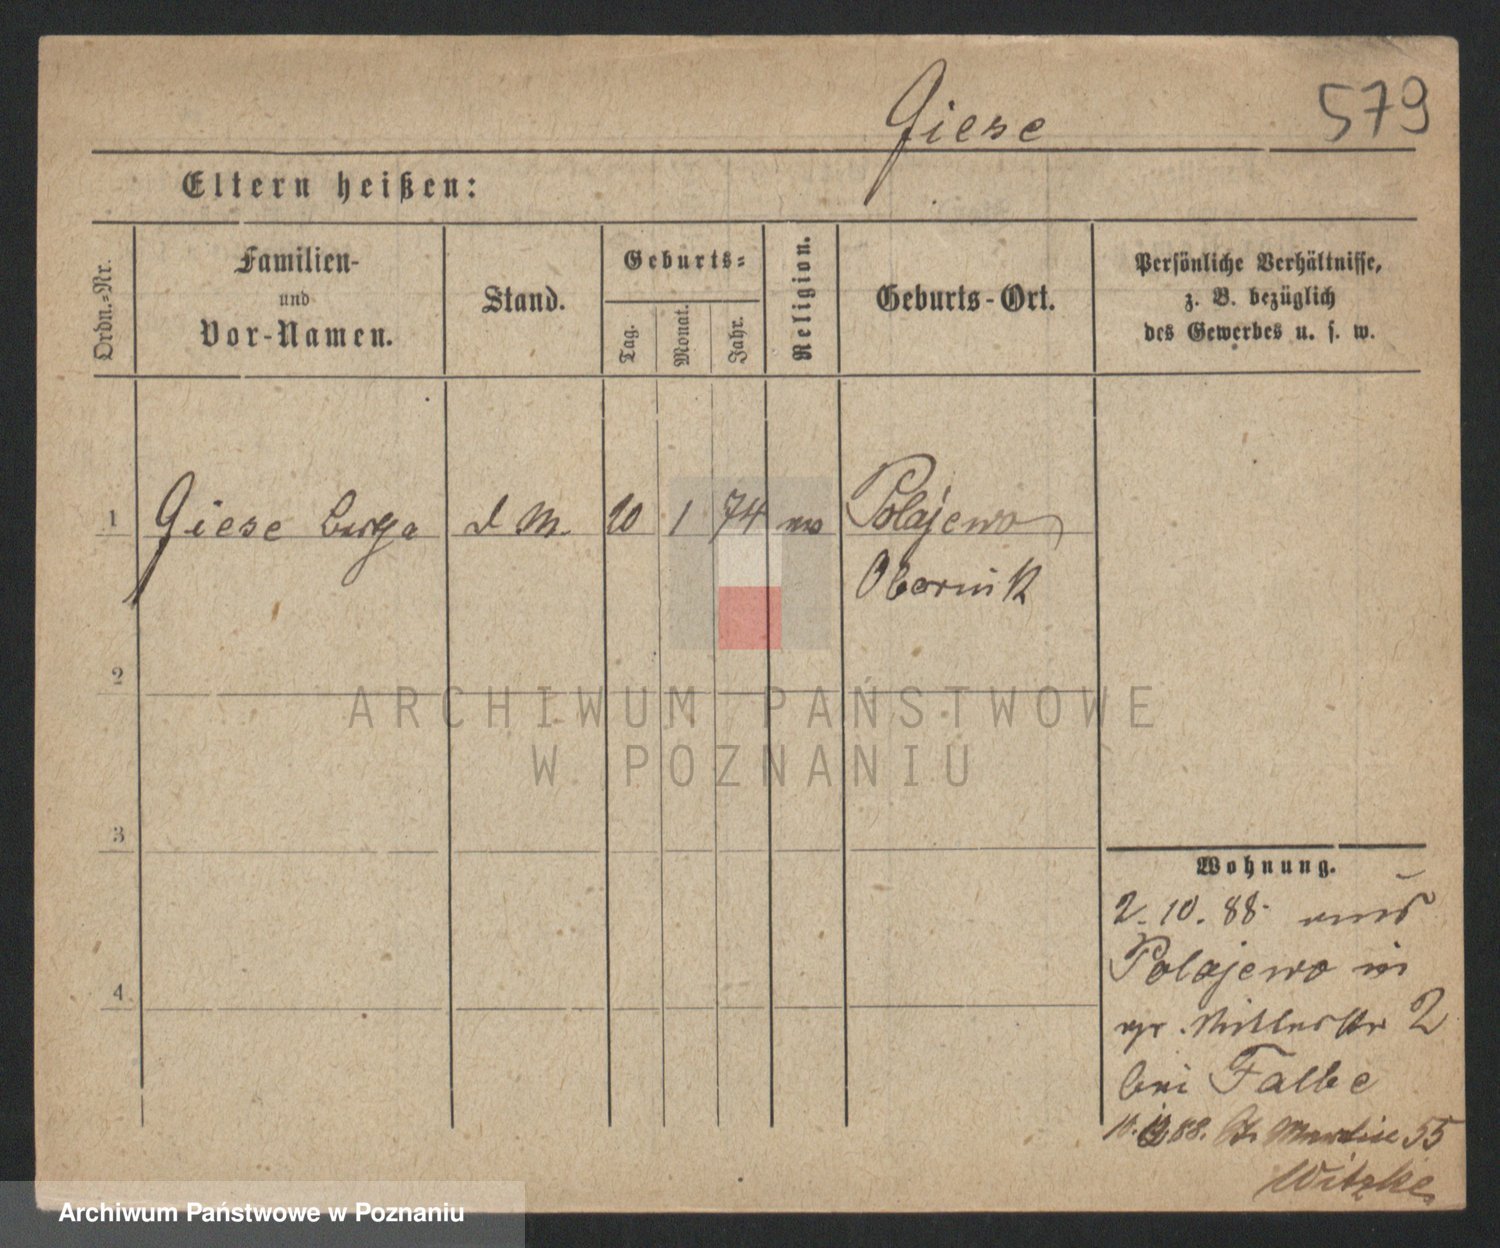 Giese 579
Eltern heißen:
Ordn.=Nr.
Familien-
und
Vor-Namen.
Stand.
Geburts=
Tag.
Monat.
Jahr.
Religion.
Geburts-Ort.
Persönliche Verhältnisse,
z. B. bezüglich
des Gewerbes u. s. w.
1 Giese d M. 20 1 74 Polajewo
Obornik
2
3
4
Wohnung.
2.10.88. aus
Polajewo in
gr. Ritterstr 2
bei Falbe
St. Martin 55
Witzke
ARCHIWUM PAŃSTWOWE
W POZNANIU
Archiwum Państwowe w Poznaniu